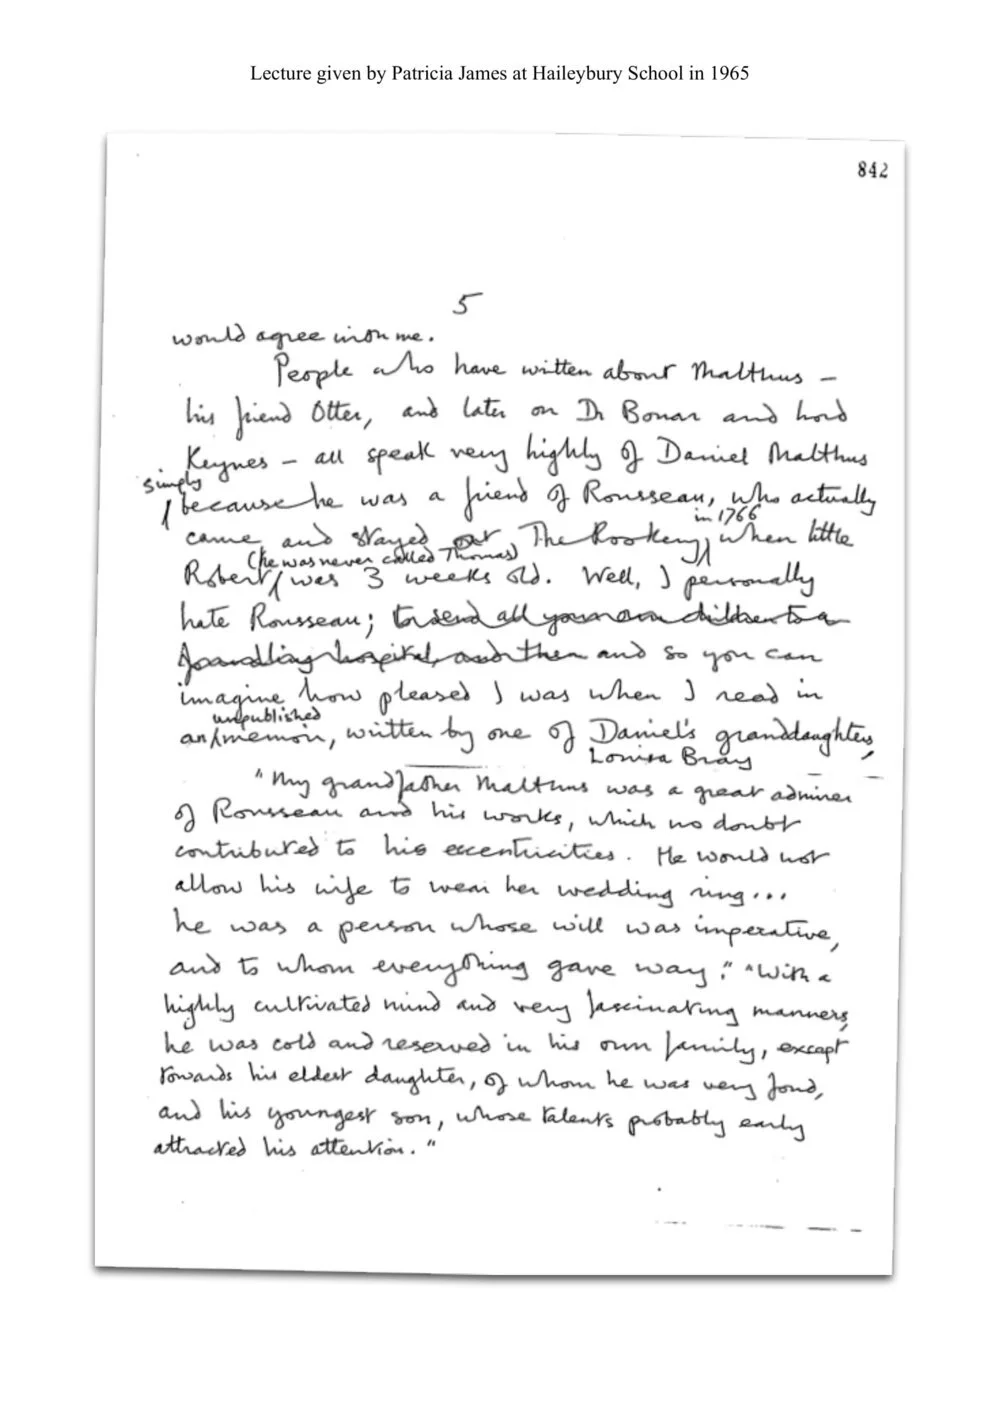 Lecture given by Patricia James at Haileybury School in 1965
842
5
would agree with me.
People who have written about Malthus –
his friend Otter, and later on Dr Bonar and Lord
Keynes – all speak very highly of Daniel Malthus
simply
because he was a friend of Rousseau, who actually
in 1766
came and stayed at The Rookery, when little
(he was never called Thomas)
Robert was 3 weeks old. Well, I personally
hate Rousseau; to send all your own children to a
foundling hospital, and then and so you can
imagine how pleased I was when I read in
unpublished
an memoir, written by one of Daniel's granddaughters,
Louisa Bray
"My grandfather Malthus was a great admirer
of Rousseau and his works, which no doubt
contributed to his eccentricities. He would not
allow his wife to wear her wedding ring...
he was a person whose will was imperative,
and to whom everything gave way." "With a
highly cultivated mind and very fascinating manners,
he was cold and reserved in his own family, except
towards his eldest daughter, of whom he was very fond,
and his youngest son, whose talents probably early
attracted his attention."